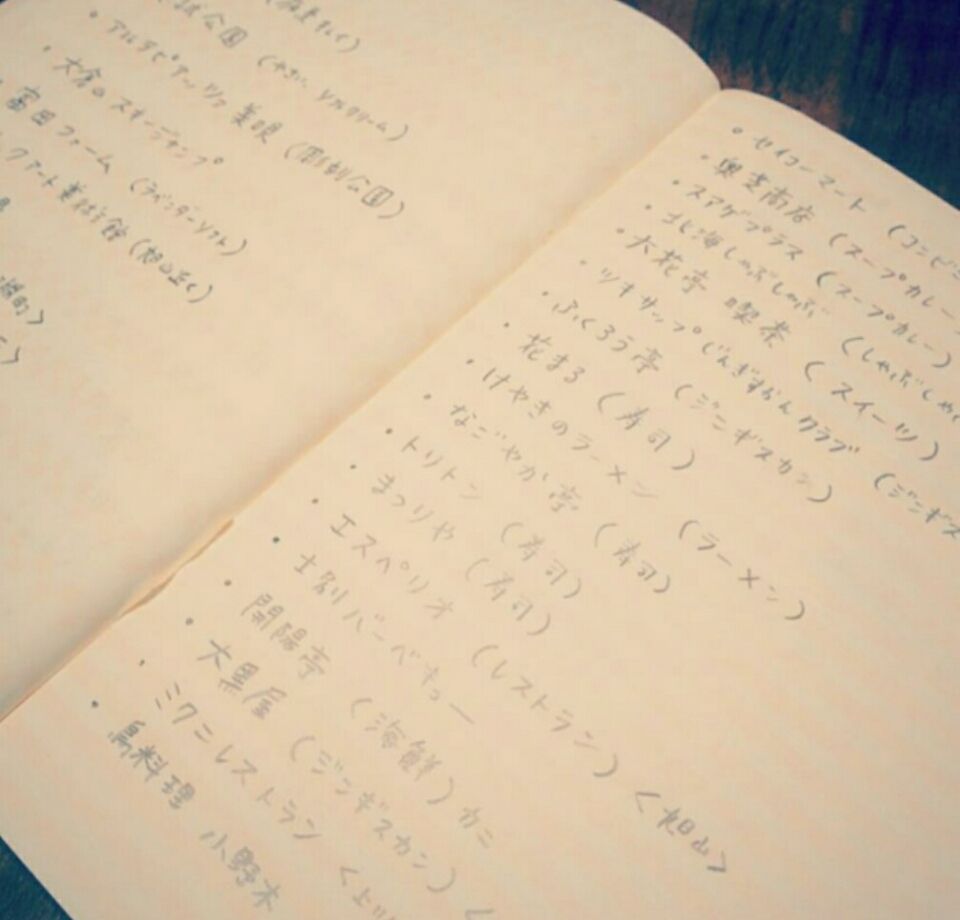 公園 (やさい ソルクリーム)
・アルテピアッツァ美唄 (彫刻公園)
・大倉山スキージャンプ
富田ファーム (ラベンダーソフト)
アート美術館 (旭山近く)
・セイコーマート (コンビニ
・奥芝商店 (スープカレー
・スアゲプラス (スープカレー)
・北海しゃぶしゃぶ (しゃぶしゃ
・六花亭 喫茶 (スイーツ)
・ツキサップじんぎすかんクラブ (ジンギス
・ふくろう亭 (ジンギスカン)
・花まる (寿司)
・けやきのラーメン (ラーメン)
・なごやか亭 (寿司)
・トリトン (寿司)
・まつりや (寿司)
・エスペリオ (レストラン) <旭山>
・士別バーベキュー
・開陽亭 (海鮮) カニ
・大黒屋 (ジンギスカン) <
・ミクニレストラン <
・鳥料理 小野木